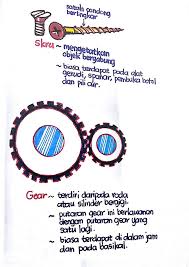 satah condong
berlingkar
Skru ~ mengetatkan
objek bergabung
~ biasa terdapat pada alat
gerudi, spanar, pembuka botol
dan pili air.
Gear ~ terdiri daripada roda
atau silinder bergigi.
~ putaran gear ini berlawanan
dengan putaran gear yang
satu lagi.
~ biasa terdapat di dalam jam
dan pada basikal.